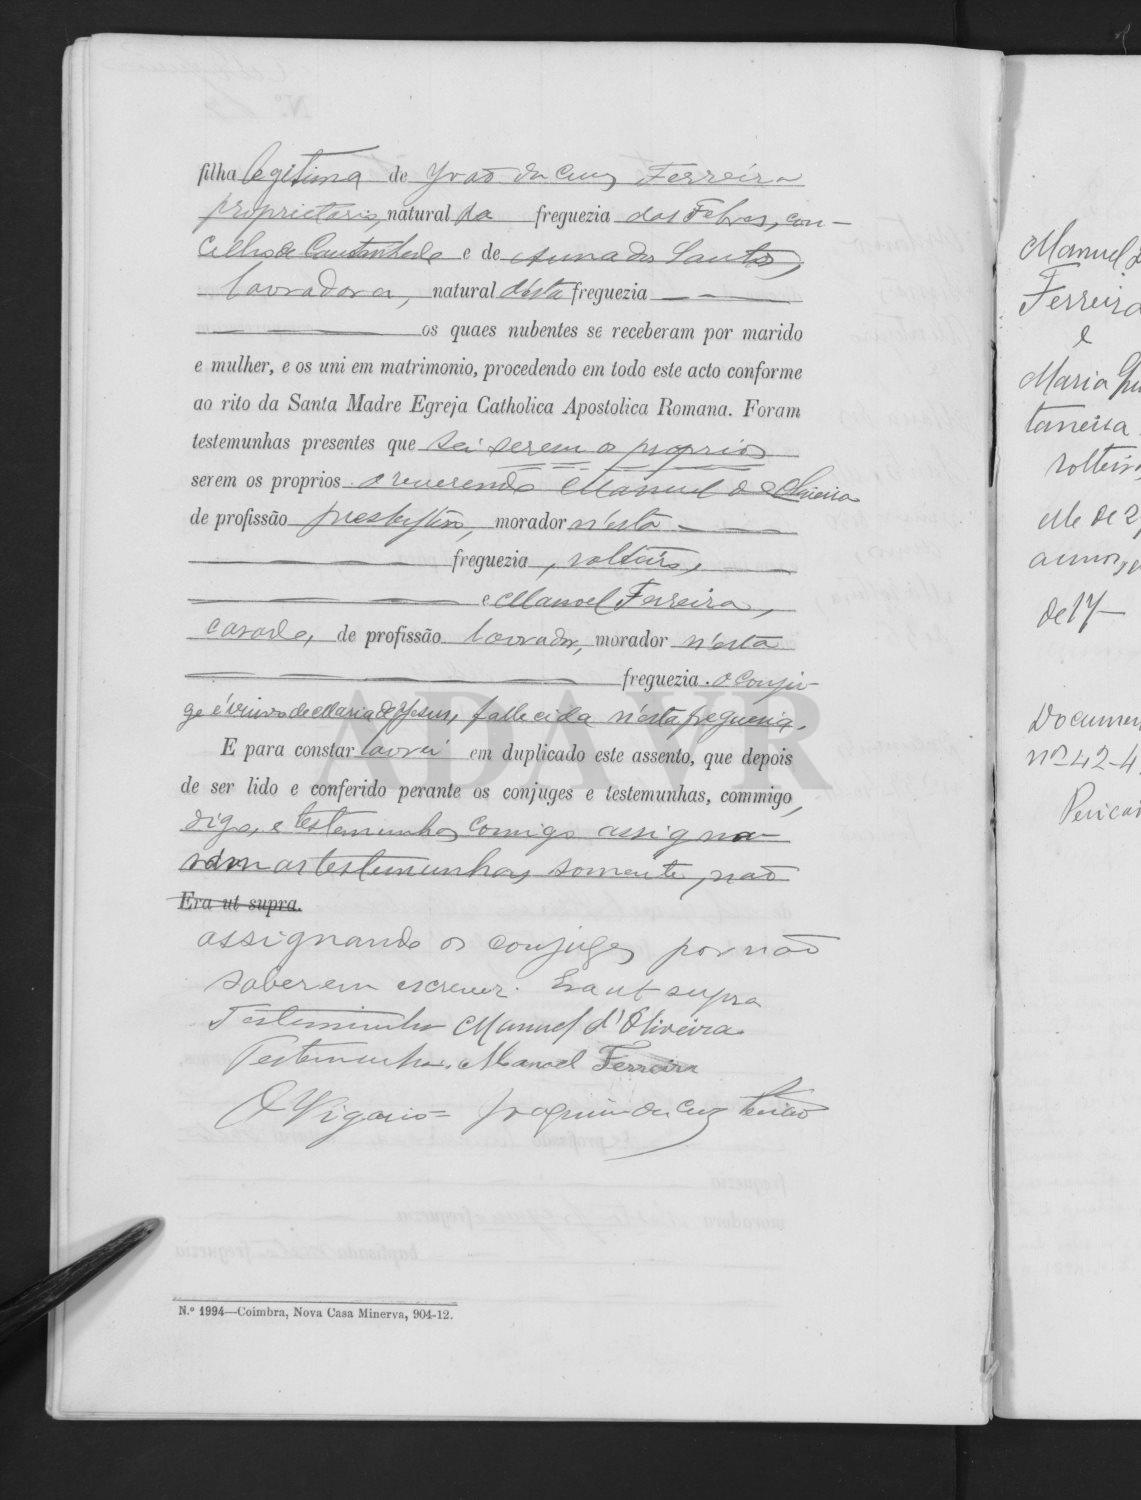 filha legitima de João da Cruz Ferreira
proprietario, natural da freguezia das Febres, con-
celho de Cantanhede e de Anna dos Santos,
lavradora, natural d'esta freguezia
os quaes nubentes se receberam por marido
e mulher, e os uni em matrimonio, procedendo em todo este acto conforme
ao rito da Santa Madre Egreja Catholica Apostolica Romana. Foram
testemunhas presentes que sei serem os proprios
serem os proprios o reverendo Manuel d'Oliveira
de profissão presbytero, morador n'esta
freguezia, solteiro,
e Manoel Ferreira,
casado, de profissão lavrador, morador n'esta
freguezia. O conju-
ge é viuvo de Maria de Jesus, fallecida n'esta freguezia.
E para constar lavrei em duplicado este assento, que depois
de ser lido e conferido perante os conjuges e testemunhas, commigo,
digo, e testemunhas comigo assigna-
ram as testemunhas somente, não
Era ut supra.
assignando os conjuges por não
saberem escrever. Era ut supra
Testemunha Manuel d'Oliveira
Testemunha, Manoel Ferreira
O Vigario = Joaquim da Cruz
N.º 1994—Coimbra, Nova Casa Minerva, 904-12.
ADAVR
Manuel
Ferreira
e
Maria
taneira
solteiros
elle de 2
annos,
de 17
Documen
nos 42-4